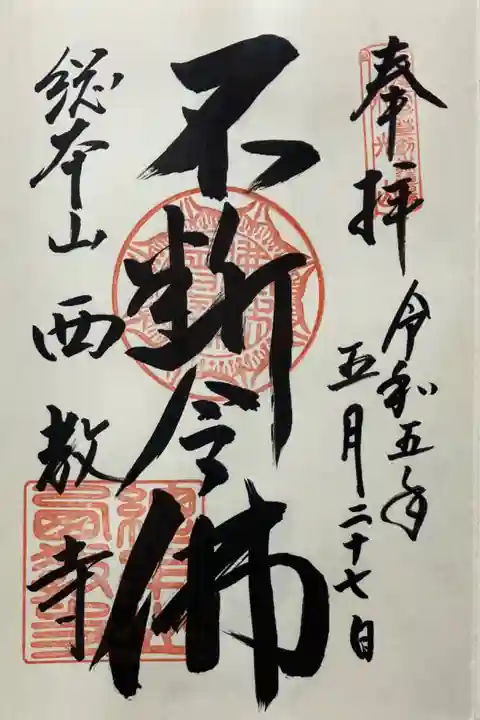 奉拝
令和五年
五月二十七日
不断念佛
総本山 西教寺